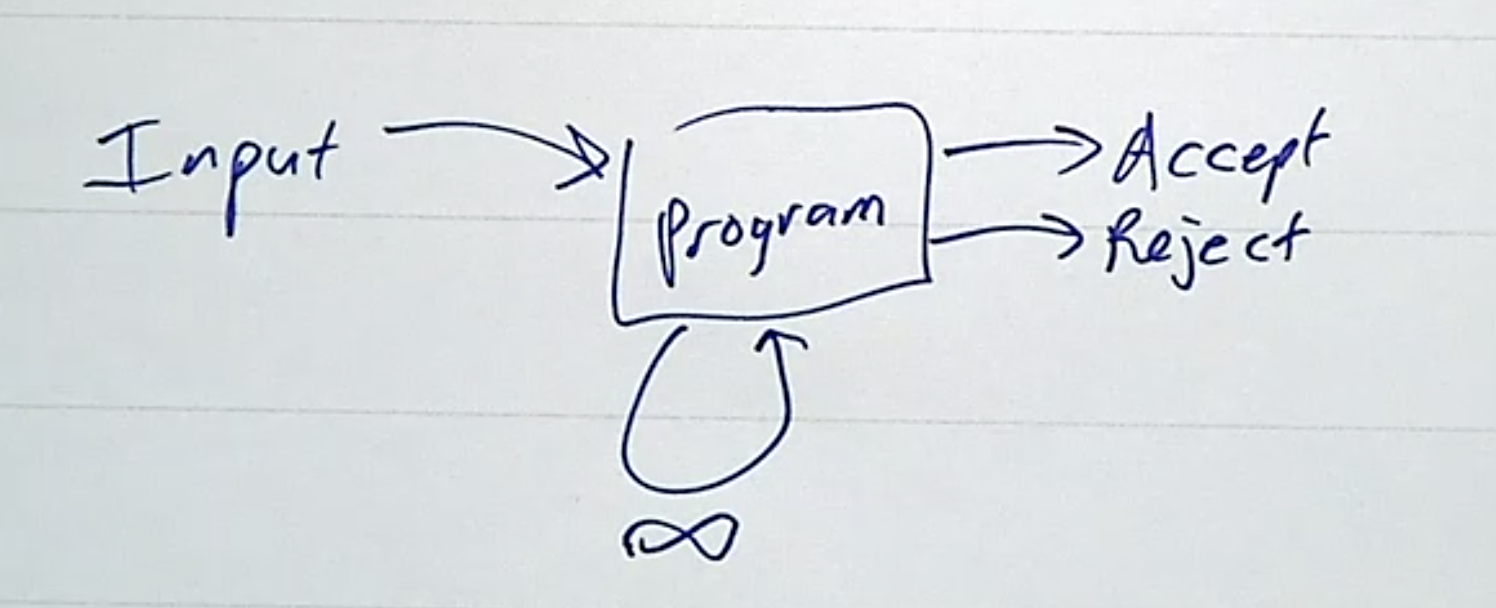 Input
Program
Accept
Reject
∞